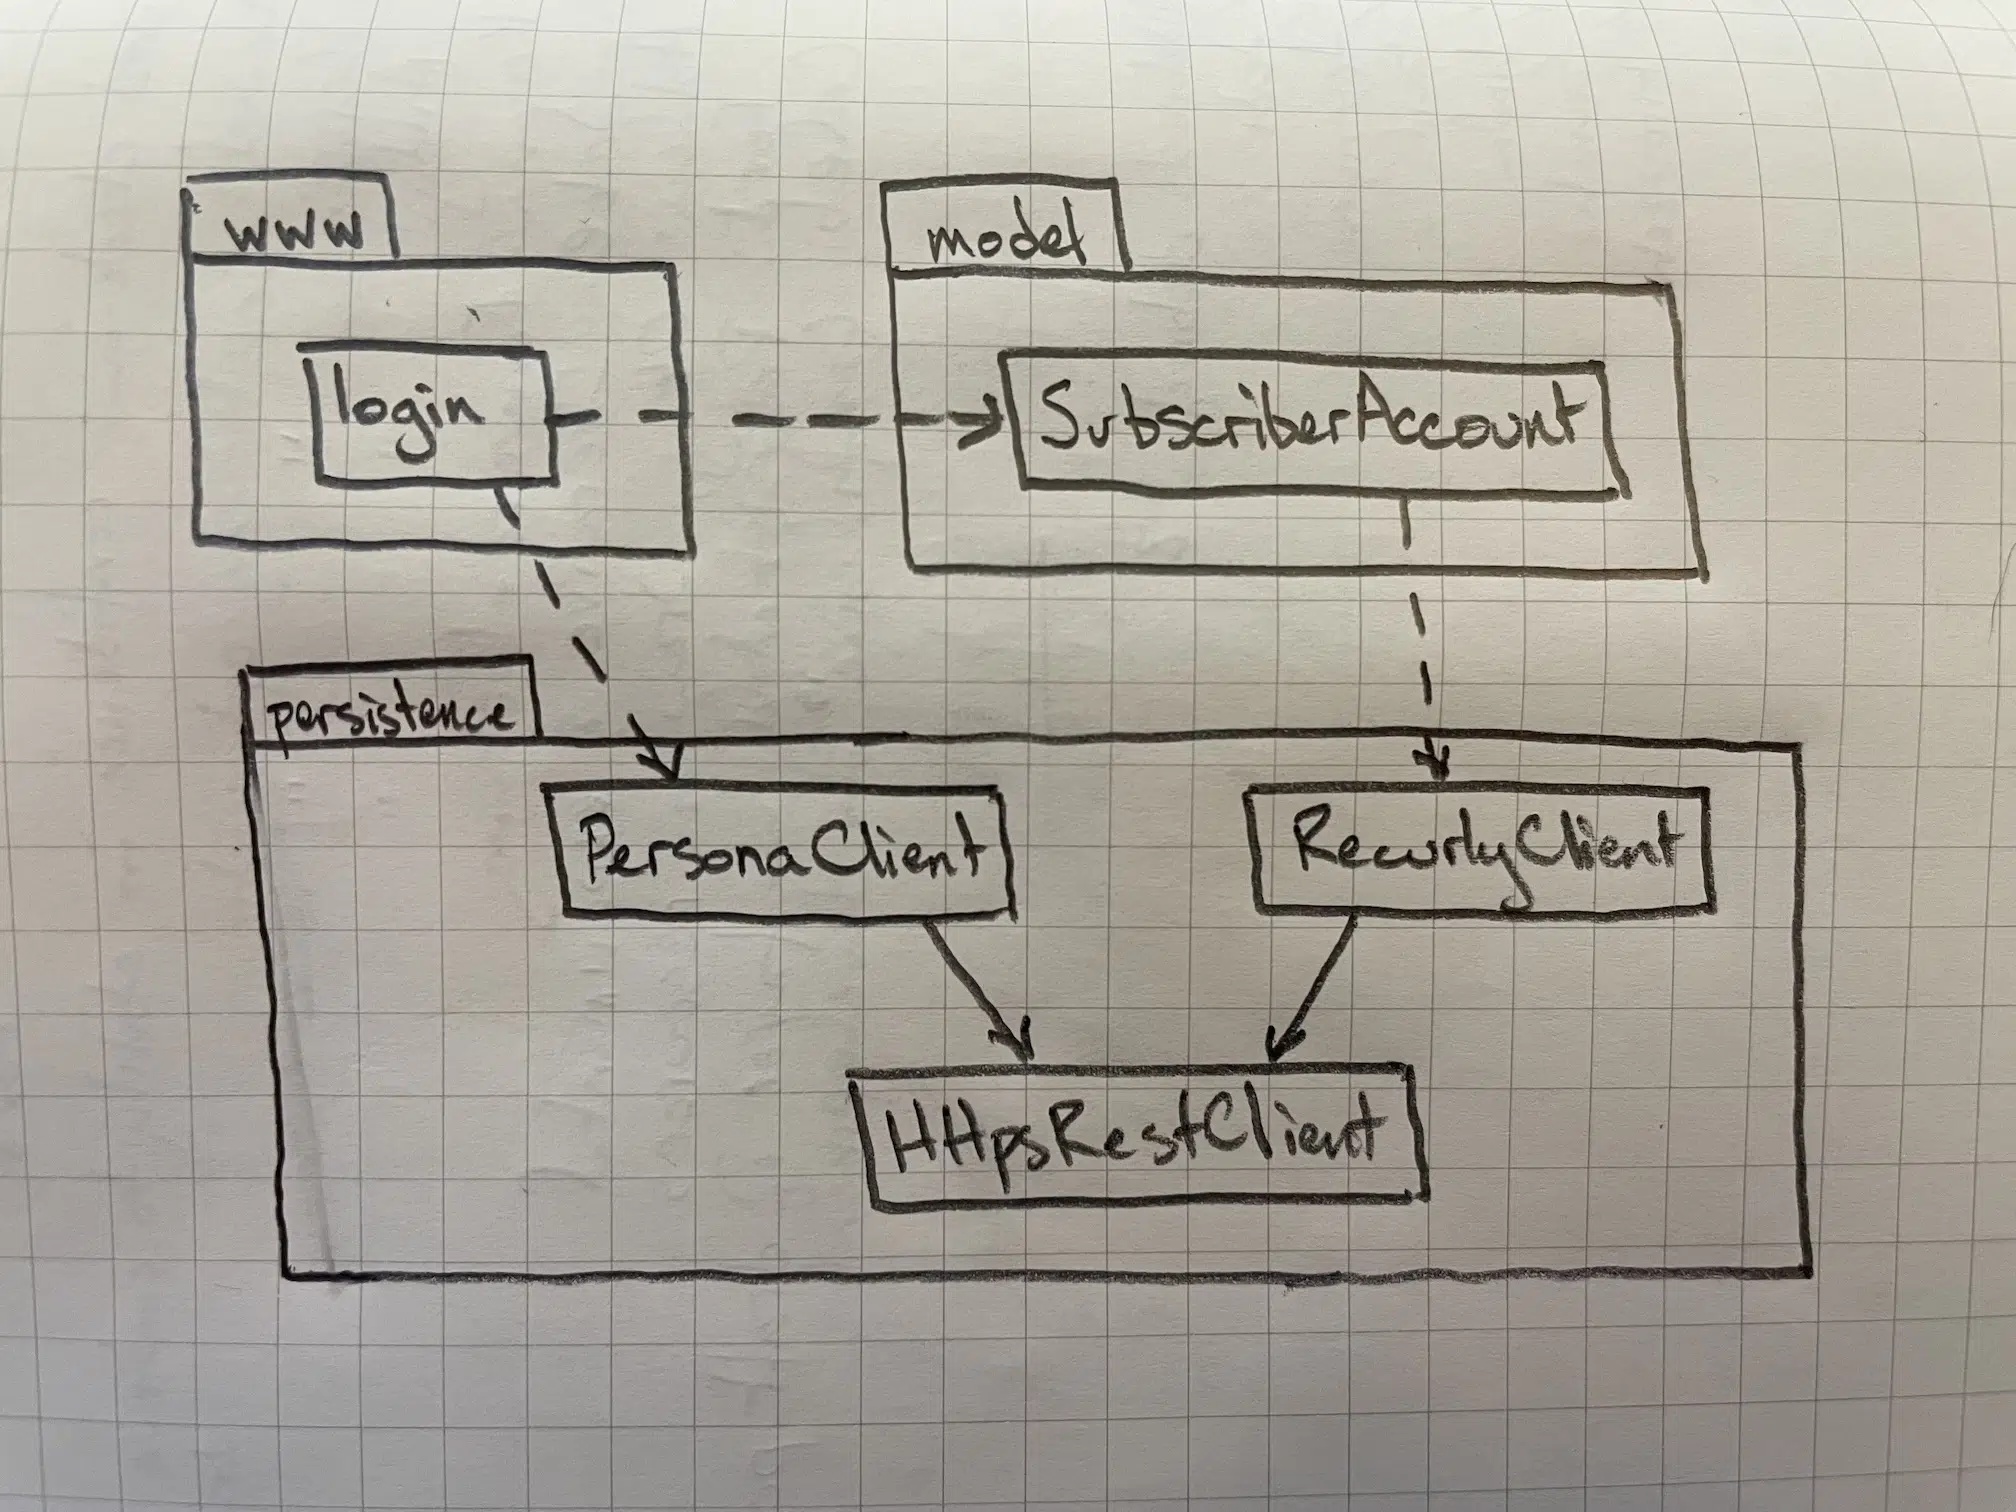 www
model
login
SubscriberAccount
persistence
PersonaClient
RecurlyClient
HttpsRestClient